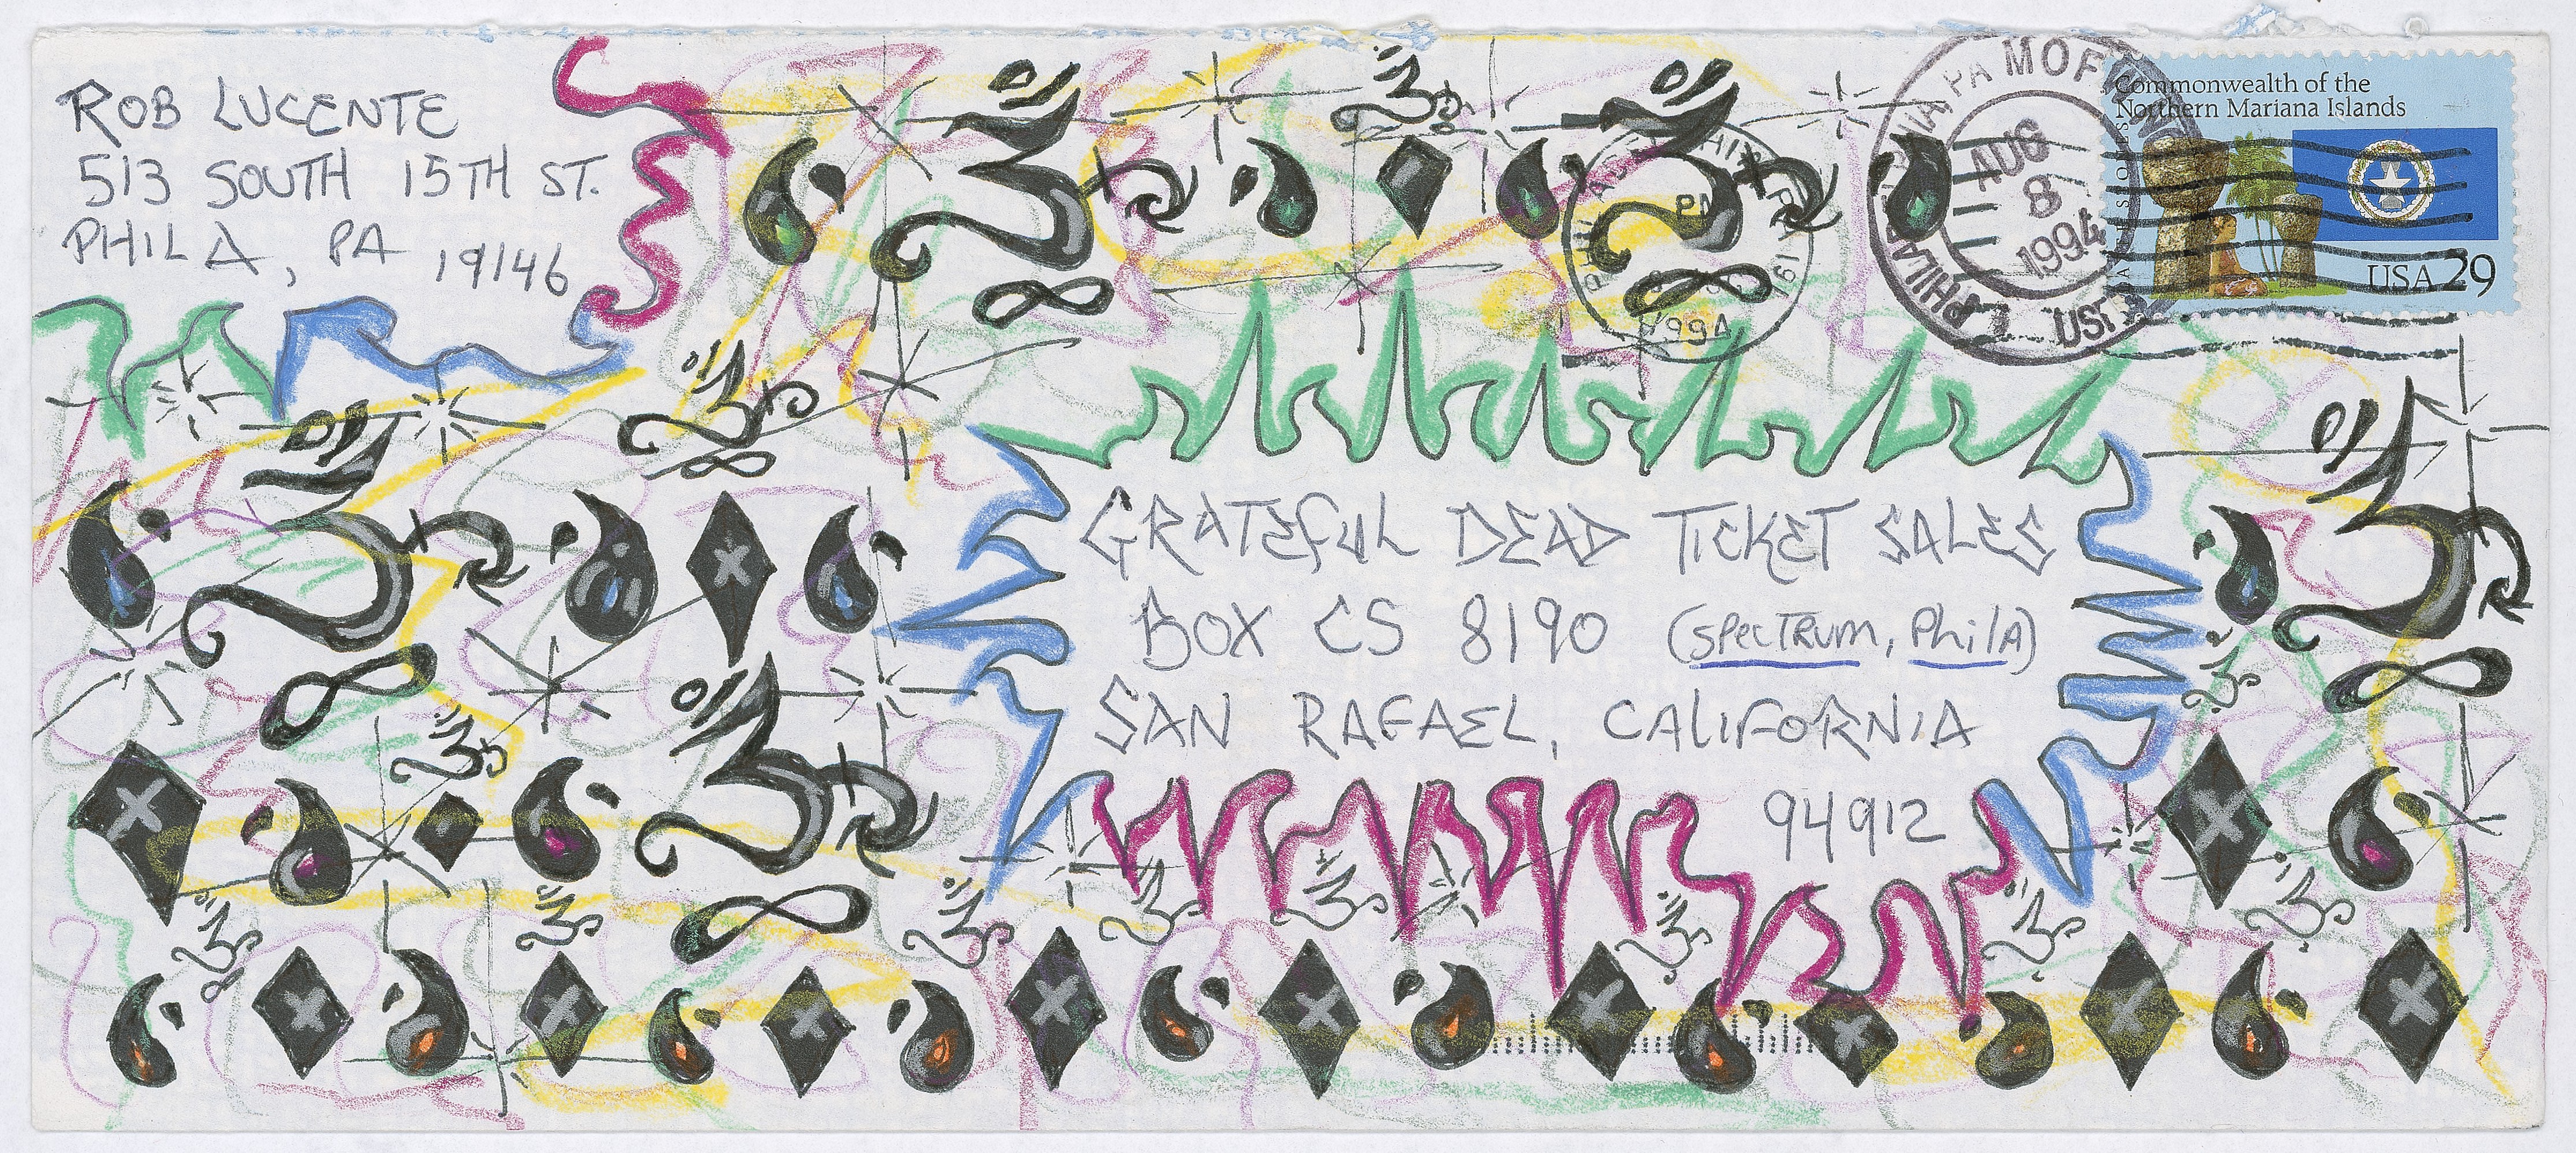 ROB LUCENTE
513 SOUTH 15TH ST.
PHILA, PA 19146
PHILADELPHIA PA MOF
AUG
8
1994
Commonwealth of the
Northern Mariana Islands
USA 29
PM
1994
GRATEFUL DEAD TICKET SALES
BOX CS 8190 (SPECTRUM, PHILA)
SAN RAFAEL, CALIFORNIA
94912